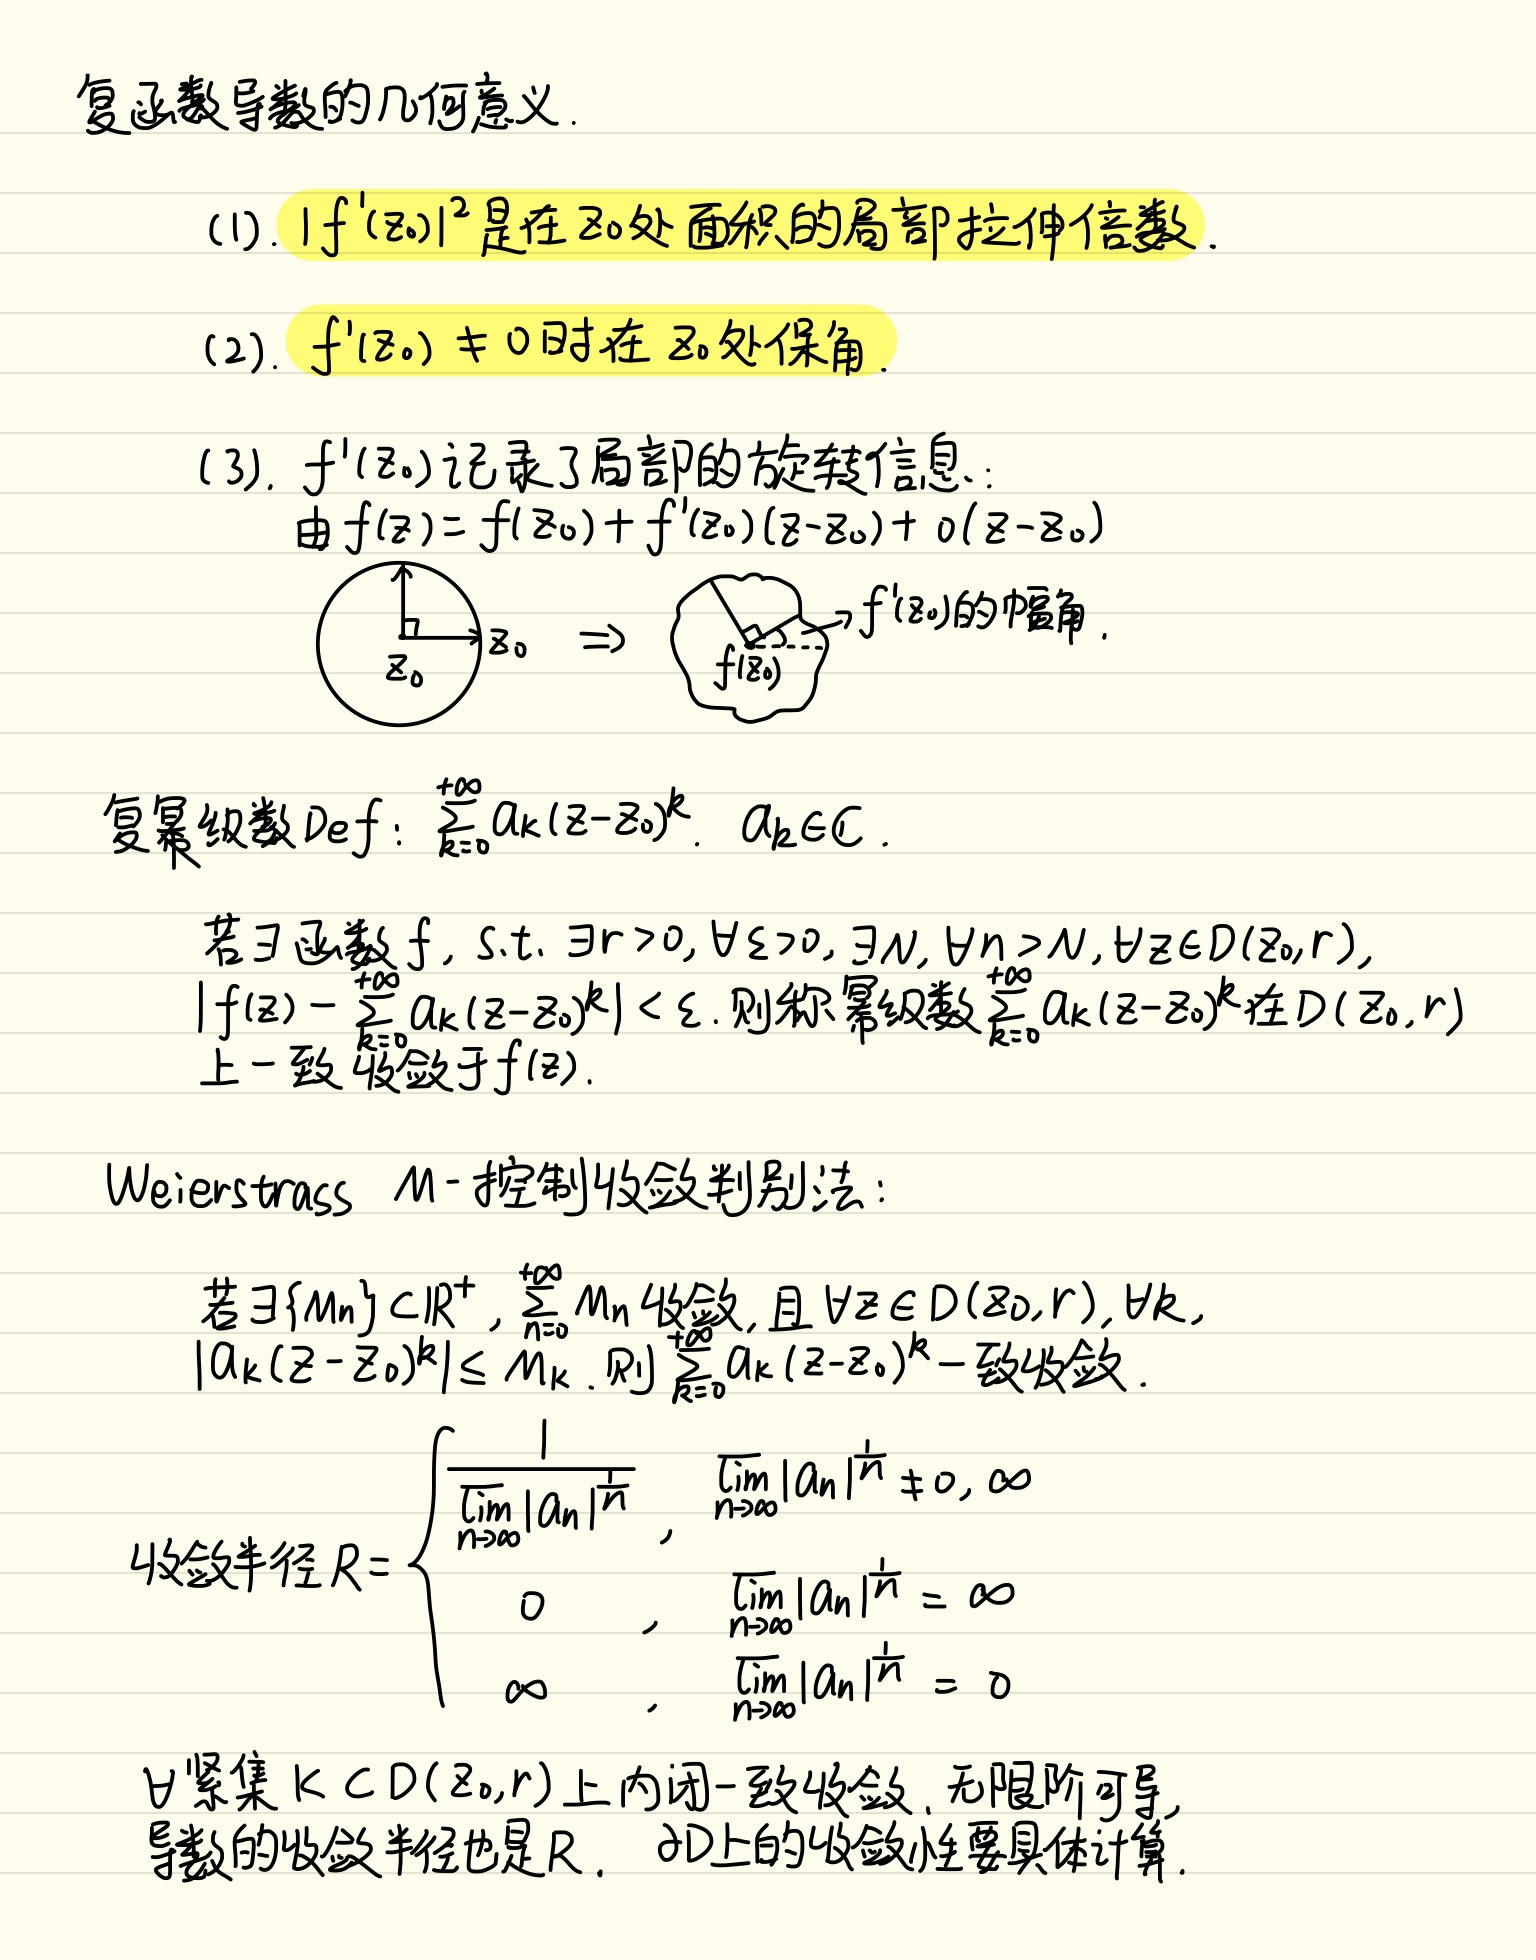 复函数导数的几何意义.
(1). |f'(z₀)|² 是在 z₀ 处面积的局部拉伸倍数.
(2). f'(z₀) ≠ 0 时在 z₀ 处保角.
(3). f'(z₀) 记录了局部的旋转信息.:
由 f(z) = f(z₀) + f'(z₀)(z-z₀) + o(z-z₀)
z₀ z₀ ⇒ f(z₀) → f'(z₀)的幅角.
复幂级数 Def: ∑_{k=0}^{+∞} a_k(z-z₀)^k. a_k ∈ ℂ.
若∃函数 f, s.t. ∃r>0, ∀ε>0, ∃N, ∀n>N, ∀z∈D(z₀,r),
|f(z) - ∑_{k=0}^{+∞} a_k(z-z₀)^k| < ε. 则称幂级数 ∑_{k=0}^{+∞} a_k(z-z₀)^k 在 D(z₀,r)
上一致收敛于 f(z).
Weierstrass M-控制收敛判别法:
若∃{Mn}⊂ℝ⁺, ∑_{n=0}^{+∞} Mn 收敛, 且 ∀z∈D(z₀,r), ∀k,
|a_k(z-z₀)^k| ≤ M_k. 则 ∑_{k=0}^{+∞} a_k(z-z₀)^k 一致收敛.
收敛半径 R = { 1/(\overline{lim}_{n→∞}|a_n|^{1/n}), \overline{lim}_{n→∞}|a_n|^{1/n} ≠ 0, ∞
0, \overline{lim}_{n→∞}|a_n|^{1/n} = ∞
∞, \overline{lim}_{n→∞}|a_n|^{1/n} = 0
∀紧集 K⊂D(z₀,r)上内闭一致收敛, 无限阶可导,
导数的收敛半径也是R. ∂D上的收敛性要具体计算.